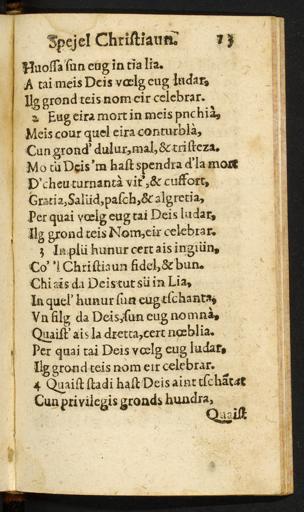 Spejel Christiaun. 13
Huossa sun eug in tia lia.
A tai meis Deis vœlg eug ludar,
Ilg grond teis nom eir celebrar.
2 Eug eira mort in meis pnchià,
Meis cour quel eira conturblà,
Cun grond' dulur, mal, & tristeza.
Mo tü Deis 'm hast spendra d'la mort
D'cheu turnantà vit', & cuffort,
Gratia, Salüd, pasch, & algretia,
Per quai vœlg eug tai Deis ludar,
Ilg grond teis Nom, eir celebrar.
3 In plü hunur cert ais ingiün,
Co' 'l Christiaun fidel, & bun.
Chi ais da Deis tut sü in Lia,
In quel' hunur sun eug tschanta,
Vn filg da Deis, sun eug nomnà,
Quaist' ais la dretta, cert nœblia.
Per quai tai Deis vœlg eug ludar,
Ilg grond teis nom eir celebrar.
4 Quaist stadi hast Deis aint tschãtat
Cun privilegis gronds hundra,
Quaist